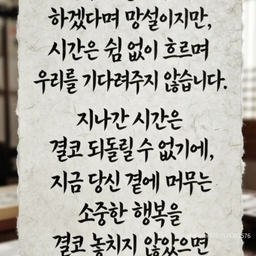 하겠다며 망설이지만,
시간은 쉼 없이 흐르며
우리를 기다려주지 않습니다.
지나간 시간은
결코 되돌릴 수 없기에,
지금 당신 곁에 머무는
소중한 행복을
결코 놓치지 않았으면